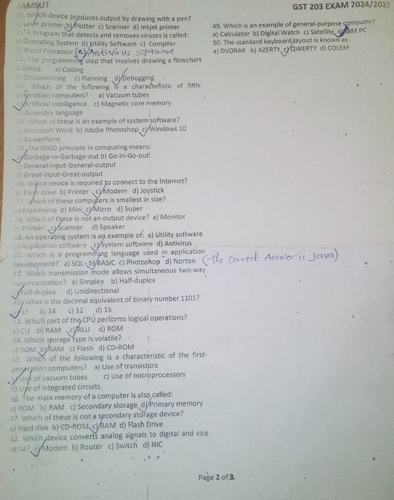 DAMSUT
GST 203 EXAM 2024/2025
30. Which device produces output by drawing with a pen?
a) Laser printer b) Plotter c) Scanner d) Inkjet printer
31. A program that detects and removes viruses is called:
a) Operating System b) Utility Software c) Compiler
d) Word Processor (e) Antivirus software
32. The programming step that involves drawing a flowchart
is called: a) Coding
b) Documenting c) Planning d) Debugging
33. Which of the following is a characteristic of fifth-
generation computers? a) Vacuum tubes
b) Artificial intelligence c) Magnetic core memory
d) Assembly language
34. Which of these is an example of system software?
a) Microsoft Word b) Adobe Photoshop c) Windows 10
d) PowerPoint
35. The GIGO principle in computing means:
a) Garbage-in-Garbage-out b) Go-in-Go-out
c) General-input-General-output
d) Great-input-Great-output
36. Which device is required to connect to the Internet?
a) Flash drive b) Printer c) Modem d) Joystick
37. Which of these computers is smallest in size?
a) Mainframe b) Mini c) Micro d) Super
38. Which of these is not an output device? a) Monitor
b) Printer c) Scanner d) Speaker
39. An operating system is an example of: a) Utility software
b) Application software c) System software d) Antivirus
40. Which is a programming language used in application
development? a) SQL b) BASIC c) Photoshop d) Norton (The correct Answer is Java)
41. Which transmission mode allows simultaneous two-way
communication? a) Simplex b) Half-duplex
c) Full-duplex d) Unidirectional
42. What is the decimal equivalent of binary number 1101?
a) 13 b) 14 c) 12 d) 15
43. Which part of the CPU performs logical operations?
a) CU b) RAM c) ALU d) ROM
44. Which storage type is volatile?
a) ROM b) RAM c) Flash d) CD-ROM
45. Which of the following is a characteristic of the first-
generation computers? a) Use of transistors
b) Use of vacuum tubes c) Use of microprocessors
d) Use of integrated circuits
46. The main memory of a computer is also called:
a) ROM b) RAM c) Secondary storage d) Primary memory
47. Which of these is not a secondary storage device?
a) Hard disk b) CD-ROM c) RAM d) Flash Drive
48. Which device converts analog signals to digital and vice
versa? a) Modem b) Router c) Switch d) NIC
49. Which is an example of general-purpose computer?
a) Calculator b) Digital Watch c) Satellite d) IBM PC
50. The standard keyboard layout is known as
a) DVORAK b) AZERTY c) QWERTY d) COLEM
Page 2 of 2